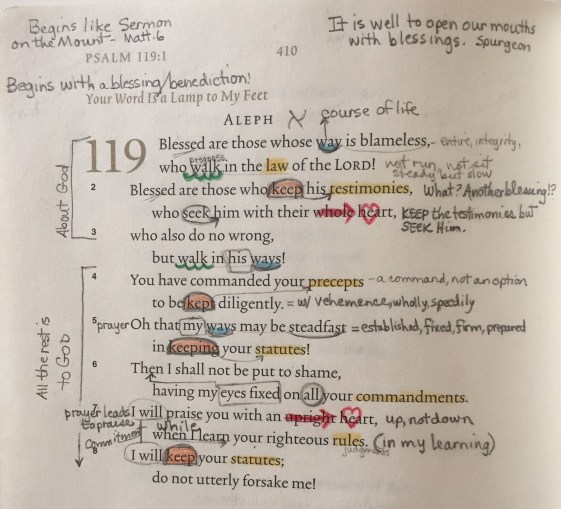 Begins like Sermon
on the Mount - Matt. 6
It is well to open our mouths
with blessings. Spurgeon
PSALM 119:1
410
Begins with a blessing/benediction!
Your Word Is a Lamp to My Feet
ALEPH א course of life
119 Blessed are those whose way is blameless, - entire, integrity,
progress
who walk in the law of the LORD! not run, not sit
steady but slow
About God
2 Blessed are those who keep his testimonies, What? Another blessing!?
who seek him with their whole heart, KEEP the testimonies but
SEEK Him.
3 who also do no wrong,
but walk in his ways!
All the rest is
to GOD
4 You have commanded your precepts - a command, not an option
to be kept diligently. = w/ vehemence, wholly, speedily
5 prayer Oh that my ways may be steadfast = established, fixed, firm, prepared
in keeping your statutes!
6 Then I shall not be put to shame,
having my eyes fixed on all your commandments.
prayer leads
to praise +
commitment
7 I will praise you with an upright heart, up, not down
while
when I learn your righteous rules. (in my learning)
judgments
8 I will keep your statutes;
do not utterly forsake me!